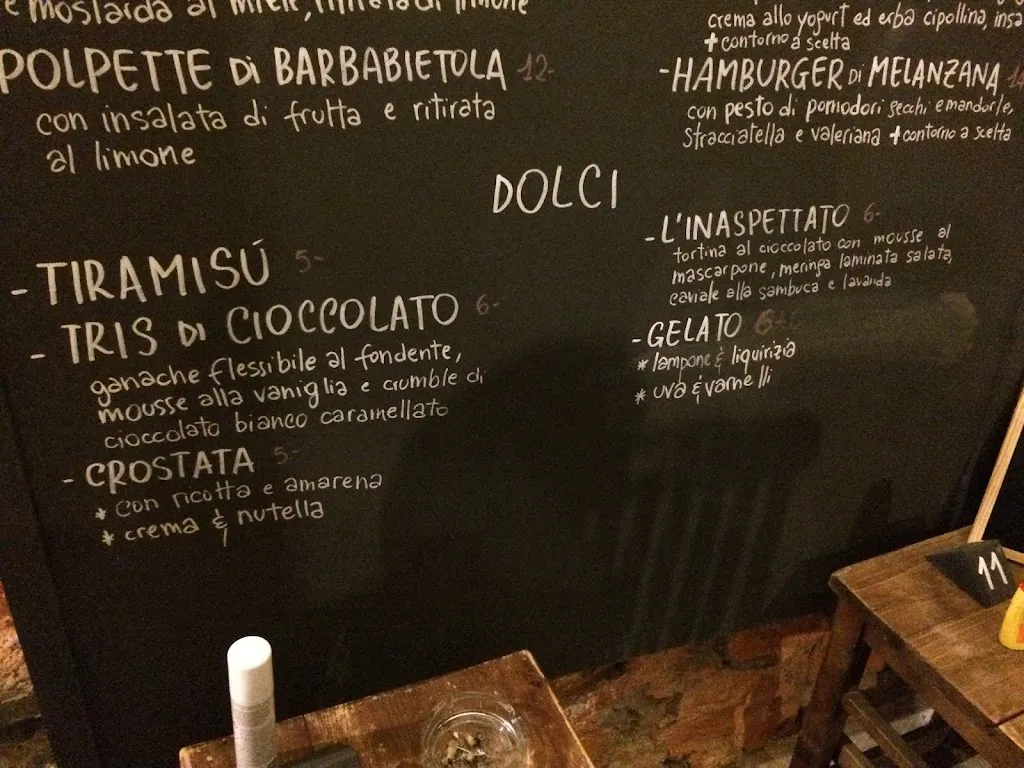 e mostarda al miele, ritirata di limone
POLPETTE Di BARBABIETOLA 12-
con insalata di frutta e ritirata
al limone
crema allo yogurt ed erba cipollina, insa
+ contorno a scelta
-HAMBURGER Di MELANZANA 14
con pesto di pomodori secchi e mandorle,
Stracciatella e valeriana + contorno a scelta
DOLCI
- TIRAMISÚ 5-
- TRIS Di CIOCCOLATO 6-
ganache flessibile al fondente,
mousse alla vaniglia e crumble di
cioccolato bianco caramellato
- CROSTATA 5-
* con ricotta e amarena
* crema & nutella
- L'INASPETTATO 6-
tortina al cioccolato con mousse al
mascarpone, meringa laminata salata,
caviale alla sambuca e lavanda
- GELATO
* lampone & liquirizia
* uva & varnelli
11